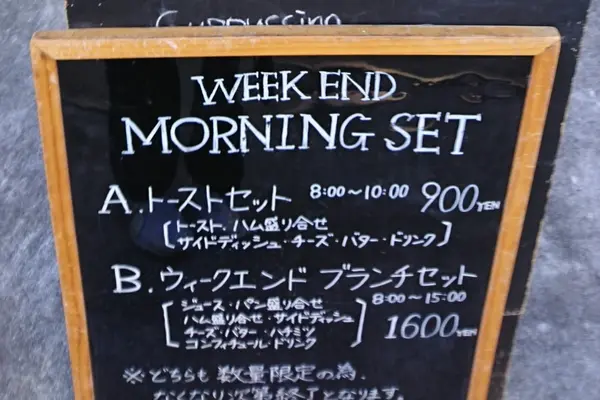 Cappuccino
WEEK END
MORNING SET
A.トーストセット 8:00〜10:00 900YEN
[トースト、ハム盛り合せ
サイドディッシュ・チーズ・バター・ドリンク]
B.ウィークエンド ブランチセット
8:00〜15:00
[ジュース・パン盛り合せ
ハム盛り合せ・サイドディッシュ
チーズ・バター・ハチミツ
コンフィチュール・ドリンク] 1600YEN
※どちらも数量限定の為、
なくなり次第終了となります。